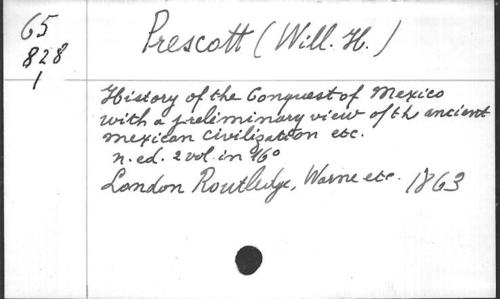 65
828
1
Prescott (Will. H.)
History of the Conquest of Mexico
with a preliminary view of the ancient
mexican civilisation etc.
n. ed. 2 vol. in 16°
London Routledge, Warne etc. 1863